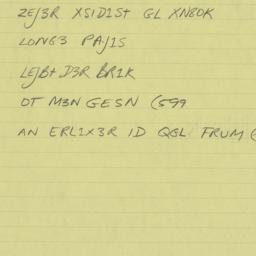 ZEJ3R XSID1St GL XN8OK
LONG3 PAJ1S
LEJBt D3R BR1K
OT M3N GESN (599
AN ERL1X3R ID QGL FRUM (